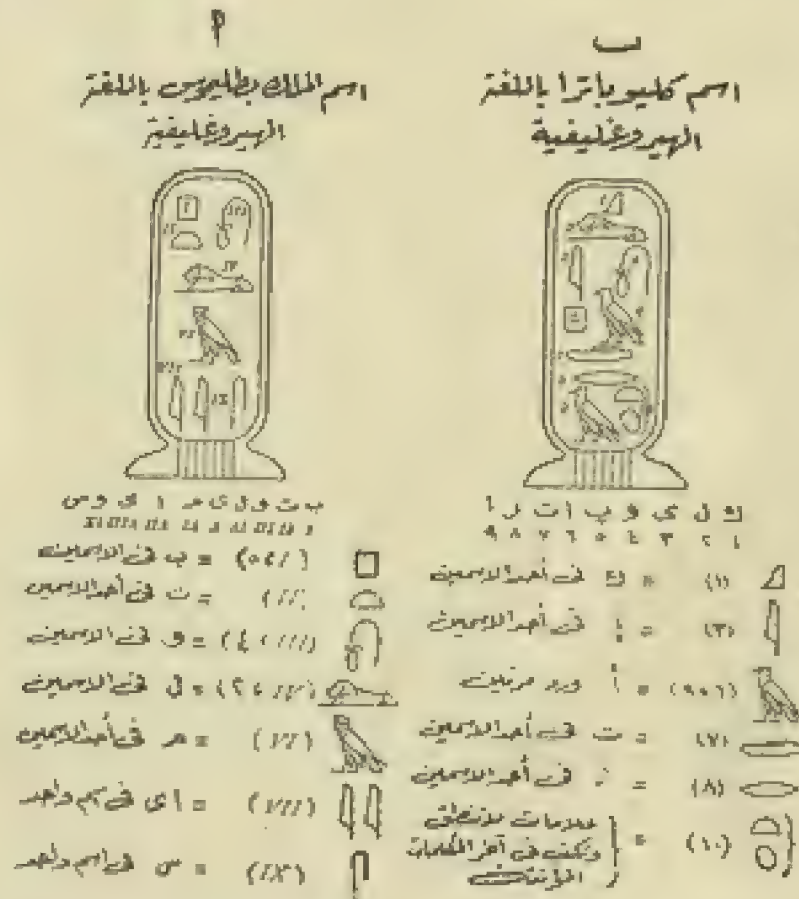 ب
اسم كليوباترا باللغة
الهيروغليفية
ك ل ى و ب ا ت ر ا
١ ٢ ٣ ٤ ٥ ٦ ٧ ٨ ٩
(١) = ك فى أحد الاسمين
(٣) = فى أحد الاسمين
(٩٠٦) = أ ورد مرتين
(٧) = ت فى أحد الاسمين
(٨) = ر فى أحد الاسمين
(١٠) = علامات لا تنطق
وتكتب فى آخر الكلمات
المؤنثة
٢
اسم الملك بطليموس باللغة
الهيروغليفية
ب ت و ل ى م ا ى و س
(٥،I) = ب فى الاسمين
(II) = ت فى أحد الاسمين
(٤،III) = و فى الاسمين
(٢،IV) = ل فى الاسمين
(VI) = م فى أحد الاسمين
(VII) = اى فى اسم واحد
(IX) = س فى اسم واحد